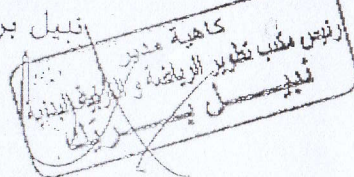 نبيل بر
كاهية مدير
رئيس مكتب تطوير الرياضة و التربية البدنية
نبيــل بــــريــاط